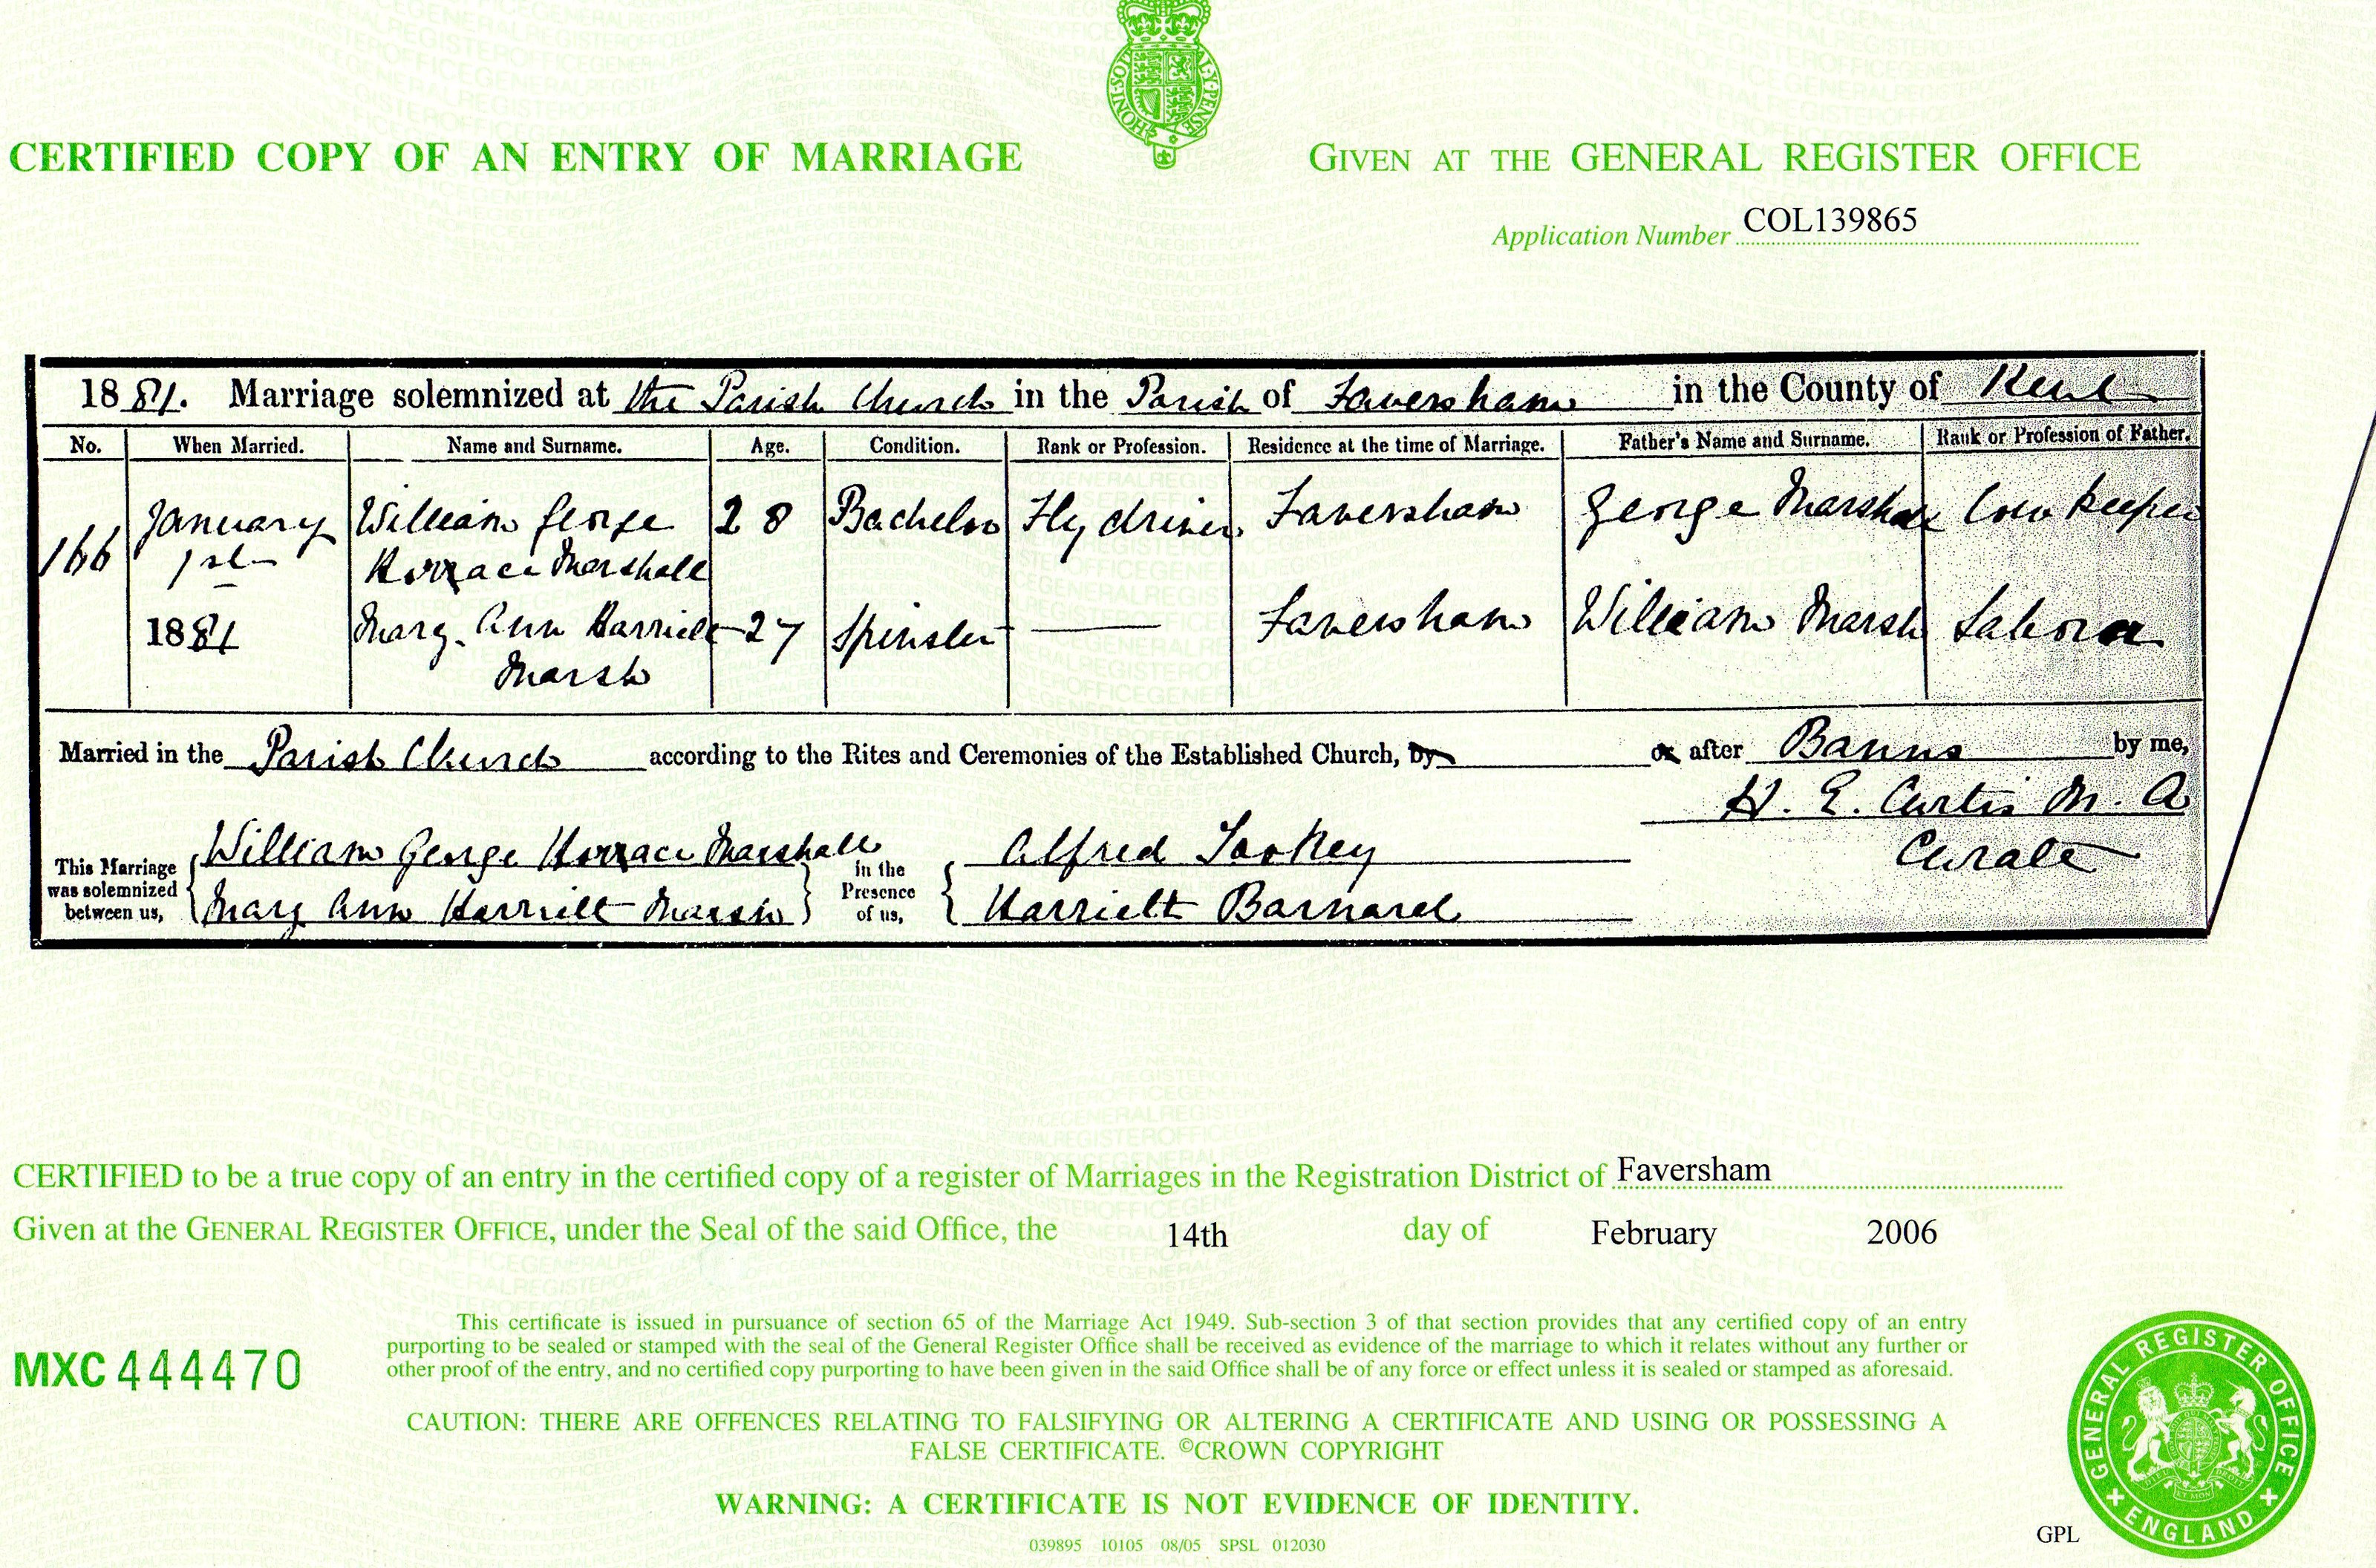 HONI·SOI AL·Y·PENSE
CERTIFIED COPY OF AN ENTRY OF MARRIAGE
GIVEN AT THE GENERAL REGISTER OFFICE
Application Number COL139865
1881. Marriage solemnized at the Parish Church in the Parish of Faversham in the County of Kent
No. When Married. Name and Surname. Age. Condition. Rank or Profession. Residence at the time of Marriage. Father's Name and Surname. Rank or Profession of Father.
166 January William George 28 Bachelor Fly driver Faversham George Marshall Cow keeper
1st Horrace Marshall
1881 Mary Ann Harriett 27 Spinster Faversham William Marsh Labourer
Marsh
Married in the Parish Church according to the Rites and Ceremonies of the Established Church, by or after Banns by me,
H. E. Curtis M. A
Curate
This Marriage was solemnized between us, William George Horrace Marshall in the Presence of us, Alfred
Mary Ann Harriett Marsh Harriett Barnard
CERTIFIED to be a true copy of an entry in the certified copy of a register of Marriages in the Registration District of Faversham
Given at the GENERAL REGISTER OFFICE, under the Seal of the said Office, the 14th day of February 2006
This certificate is issued in pursuance of section 65 of the Marriage Act 1949. Sub-section 3 of that section provides that any certified copy of an entry
purporting to be sealed or stamped with the seal of the General Register Office shall be received as evidence of the marriage to which it relates without any further or
other proof of the entry, and no certified copy purporting to have been given in the said Office shall be of any force or effect unless it is sealed or stamped as aforesaid.
MXC 444470
CAUTION: THERE ARE OFFENCES RELATING TO FALSIFYING OR ALTERING A CERTIFICATE AND USING OR POSSESSING A
FALSE CERTIFICATE. ©CROWN COPYRIGHT
WARNING: A CERTIFICATE IS NOT EVIDENCE OF IDENTITY.
039895 10105 08/05 SPSL 012030
GPL
GENERAL REGISTER OFFICE
ENGLAND